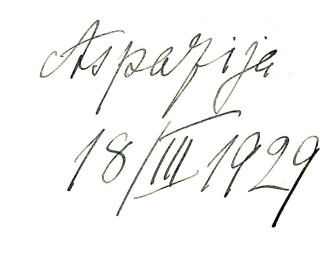 Aspazija
18/III 1929